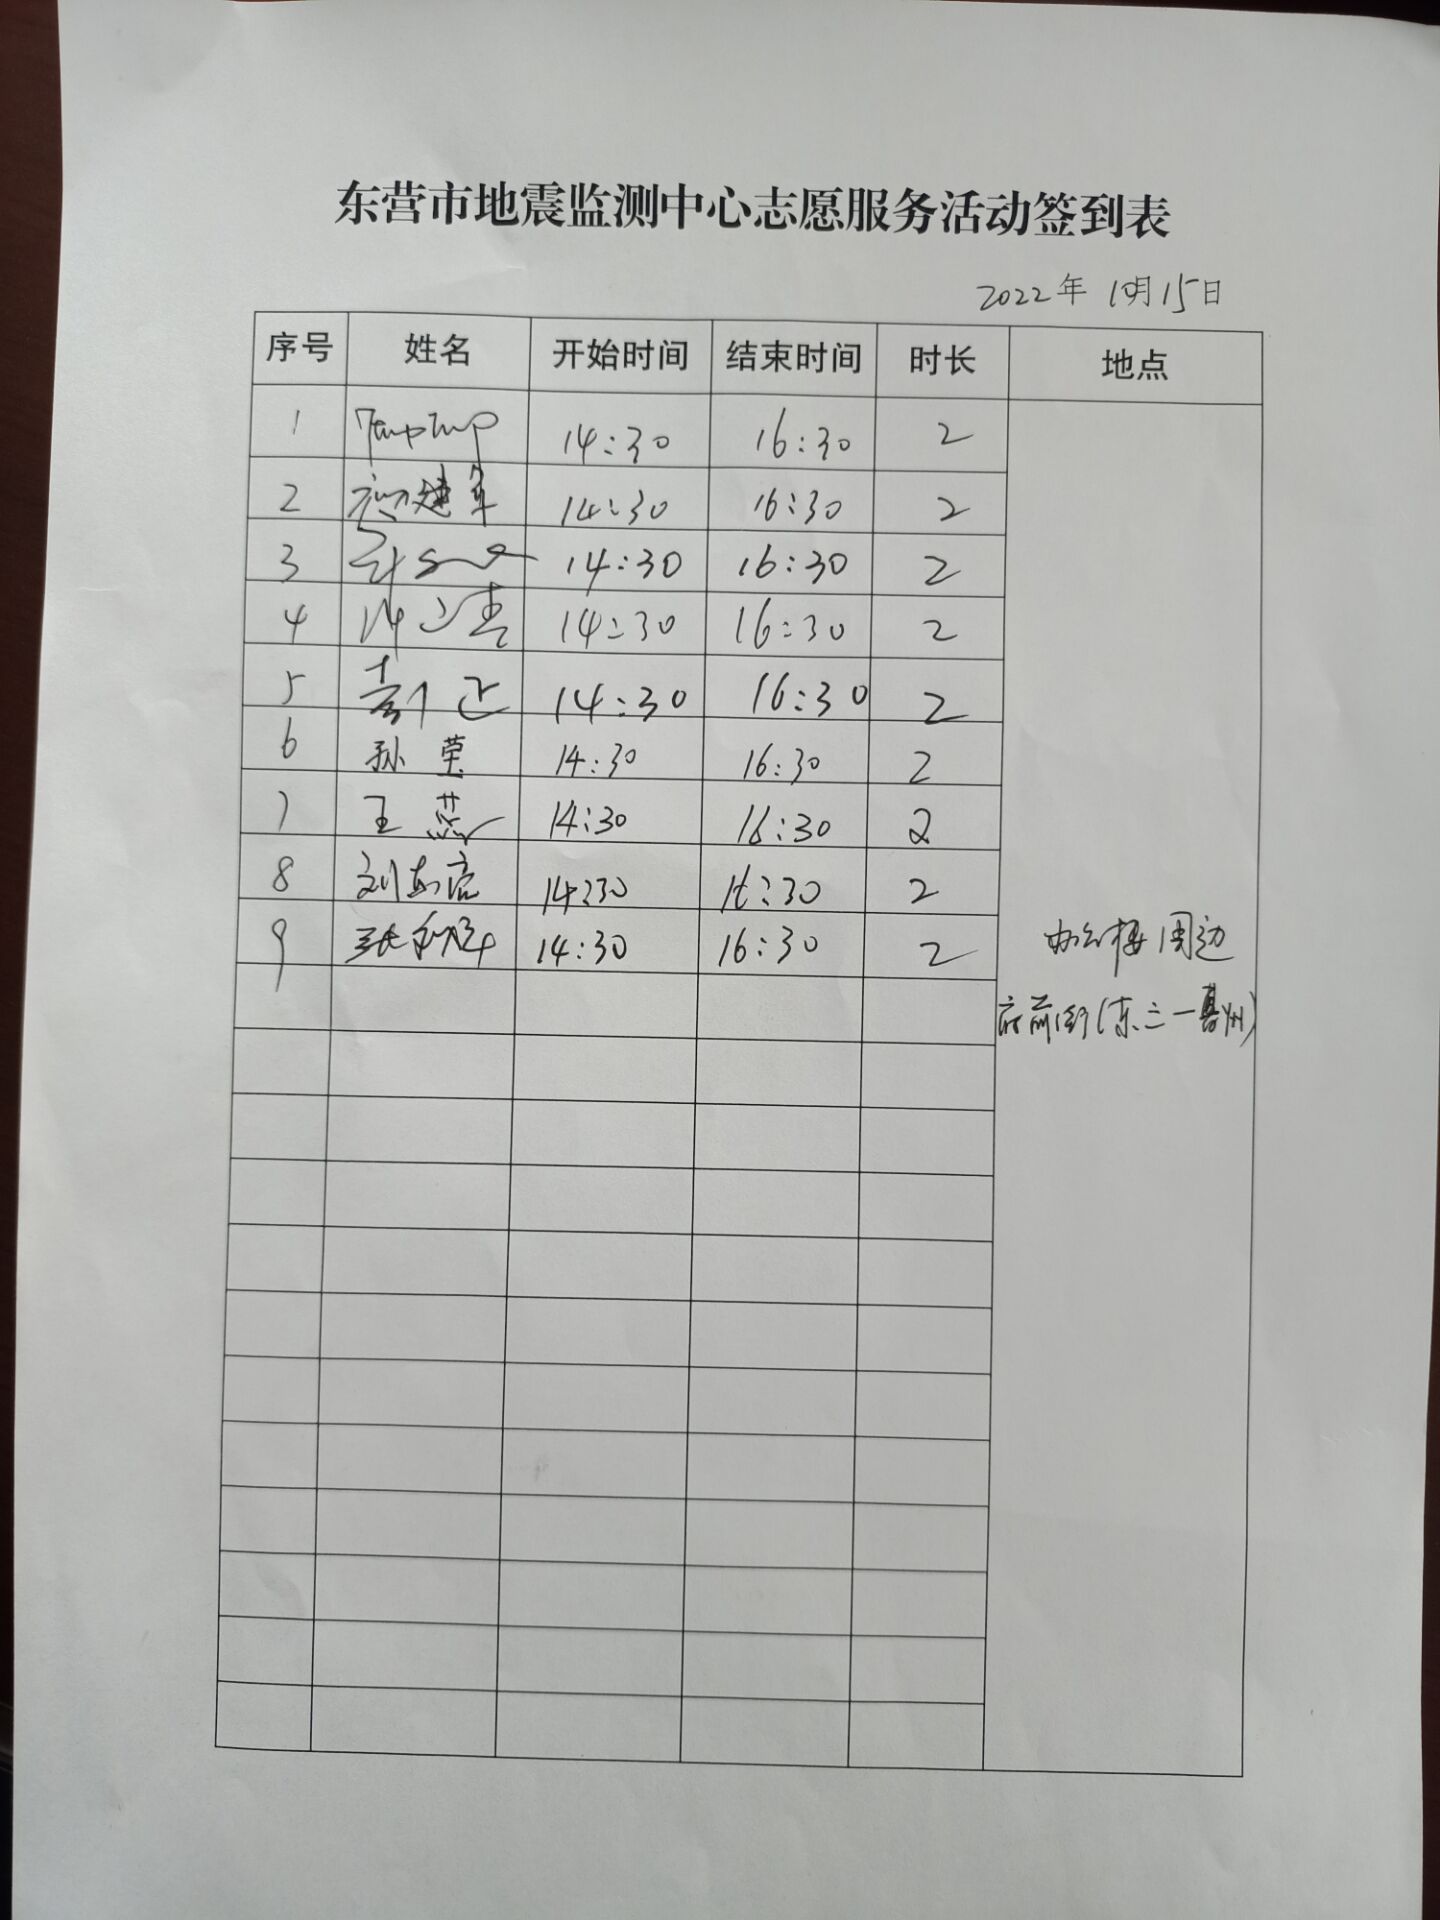 东营市地震监测中心志愿服务活动签到表
2022年 10月15日
序号 姓名 开始时间 结束时间 时长 地点
1 14:30 16:30 2
2 建军 14:30 16:30 2
3 14:30 16:30 2
4 14:30 16:30 2
5 14:30 16:30 2
6 孙莹 14:30 16:30 2
7 王燕 14:30 16:30 2
8 刘东亮 14:30 16:30 2
9 张 14:30 16:30 2
办公楼周边
府前街(东三一 州)